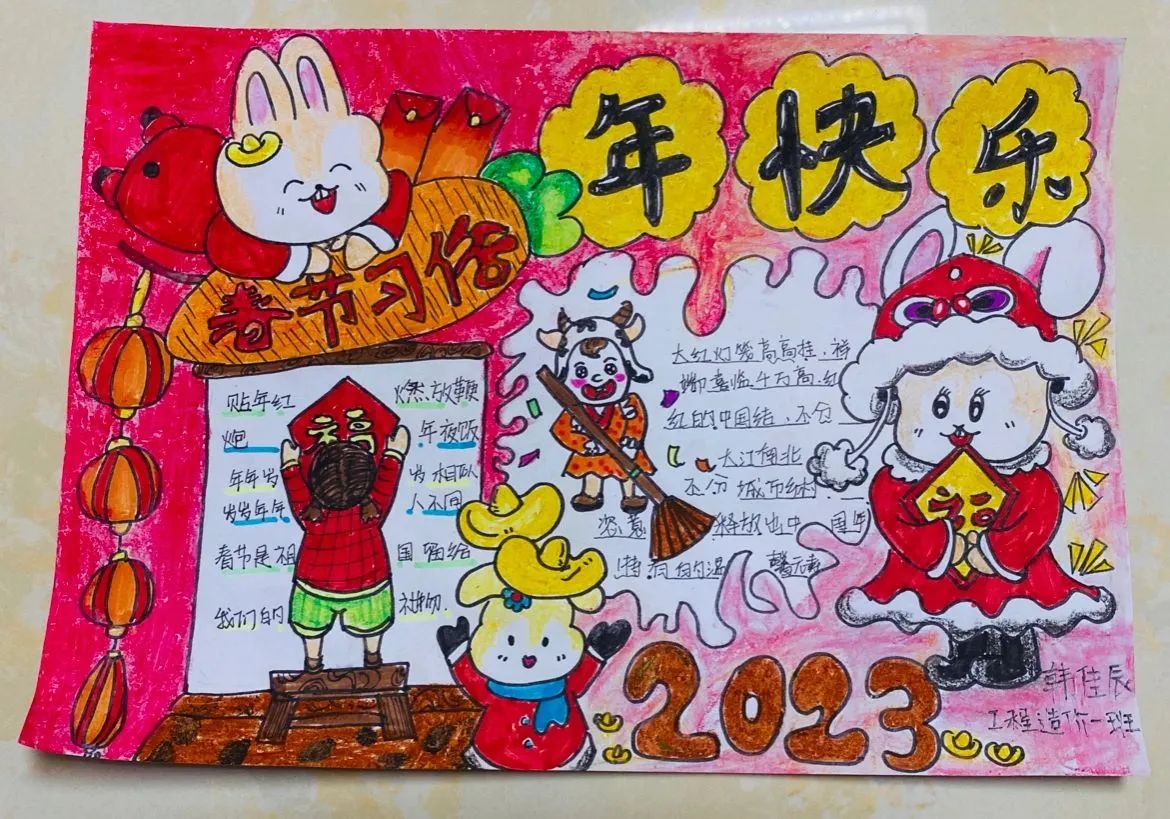 年快乐
春节习俗
贴年红 燃放鞭
炮 年夜饭
年年岁 岁相似
岁岁年年 人不同
春节是祖 国留给
我们的 礼物.
福
大红灯笼高高挂、祥
瑞喜临千万高.红
红的中国结、不分
大江南北
不分城市乡村
恣意 释放出中国年
特有的温馨
福
2023
韩佳辰
工程造价一班